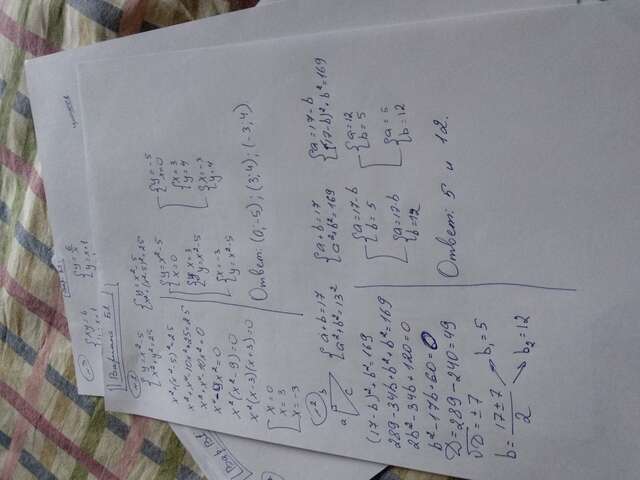 {xy=6
{y=6/x
y=x+1
Вариант Б1
№1
{y=x²-5
x²+y²=25
{y=x²-5
x²+(x²-5)²=25
x²+(x²-5)²=25
x²+x⁴-10x²+25=25
x²+x⁴-10x²=0
x⁴-9x²=0
x²(x²-9)=0
x²(x-3)(x+3)=0
[x=0
x=3
x=-3
[{y=x²-5
x=0
{x=3
y=x²-5
{x=-3
y=x²-5
[{y=-5
x=0
{x=3
y=4
{x=-3
y=4
Ответ: (0;-5); (3;4); (-3;4)
№2
a b c
{a+b=17
a²+b²=13²
{a+b=17
a²+b²=169
{a=17-b
(17-b)²+b²=169
(17-b)²+b²=169
289-34b+b²+b²=169
2b²-34b+120=0
b²-17b+60=0
D=289-240=49
√D=±7
b=(17±7)/2
b₁=5
b₂=12
[{a=17-b
b=5
{a=17-b
b=12
[{a=12
b=5
{a=5
b=12
Ответ: 5 и 12.